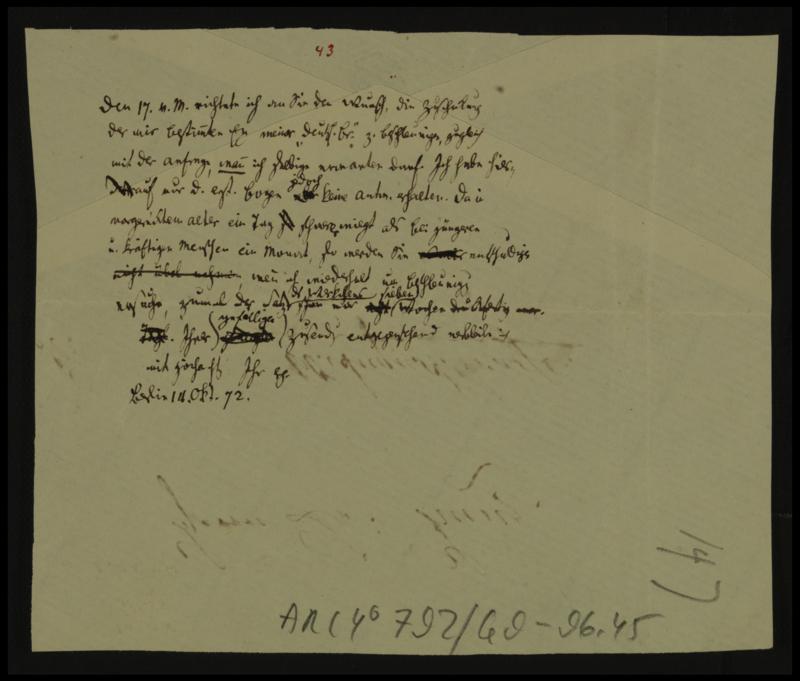 43
Den 17. v. M. richtete ich an Sie den Wunsch, die Zusendung
der mir bestimmten Ex. meiner "Deutsch. Br." z. beschleunigen, zugleich
mit der Anfrage, wann ich selbige erwarten darf. Ich habe hier-
auf nur d. erst. Bogen jedoch keine Antw. erhalten. Da i.
vorgerücktem Alter ein Tag schwerer wiegt als bei jüngeren
u. kräftigen Menschen ein Monat, so werden Sie entschuldigen
nicht übel nehmen, wenn ich wiederholt um Beschleunigung
ersuche, zumal der Satz des Werkchens schon vor sieben Wochen
Ihrer gefälligen Zusendg entgegensehend verbleibe ich
mit Hochacht. Ihr
Berlin 14. Okt. 72.
47
ARC 4° 792/G9-26.45